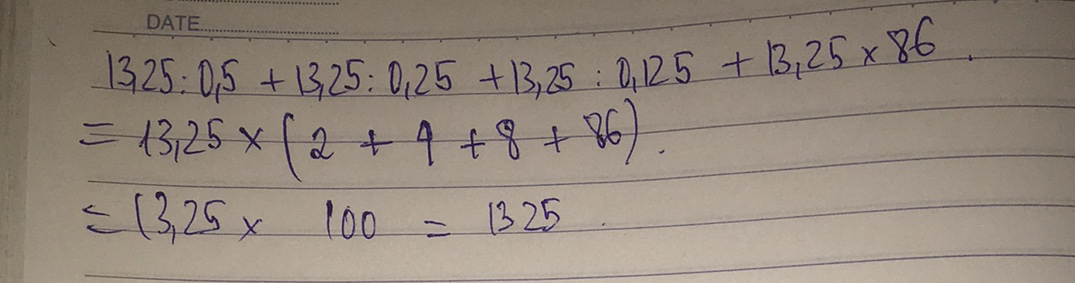 DATE
13,25 : 0,5 + 13,25 : 0,25 + 13,25 : 0,125 + 13,25 x 86.
= 13,25 x (2 + 4 + 8 + 86).
= 13,25 x 100 = 1325.